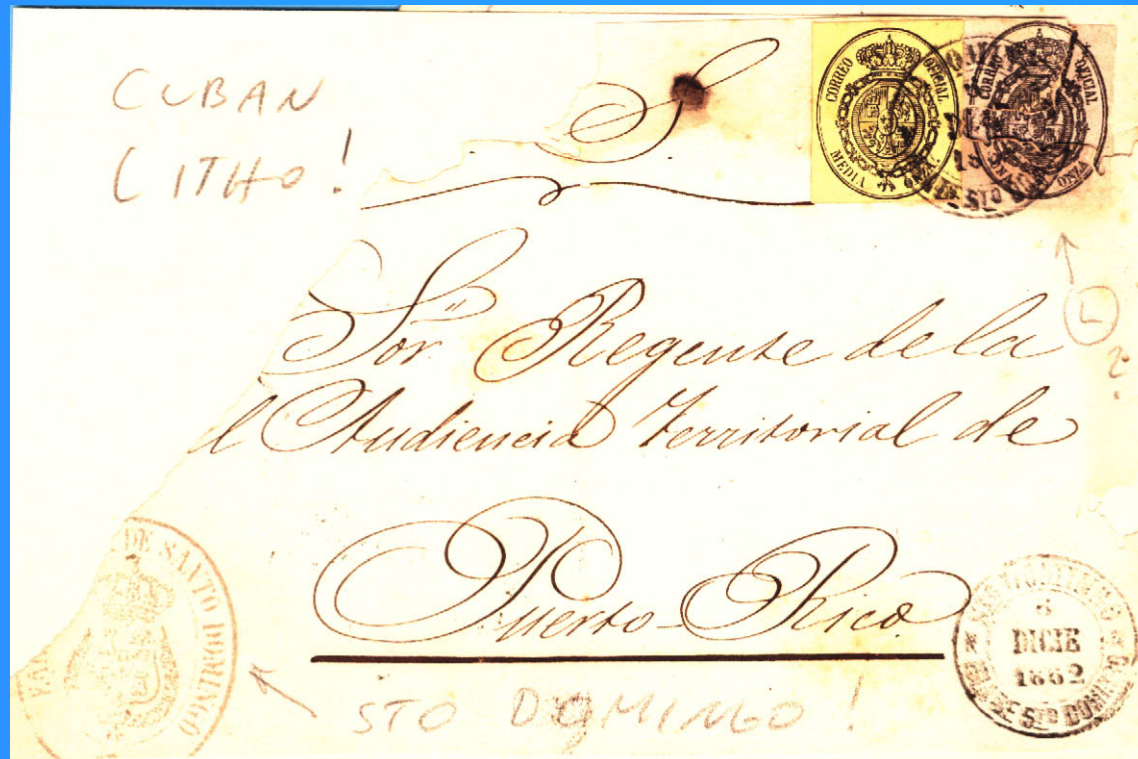 CUBAN
LITHO!
S
CORREO OFICIAL
MEDIA ONZA
CORREO OFICIAL
ONZA
STO
L
?
Sor. Regente de la
l Audiencia Territorial de
Puerto-Rico
DE SANTO DOMINGO
STO DOMINGO!
6
DICIE
1862
DE STO DOMI